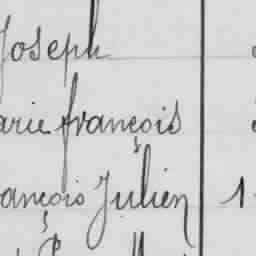 Joseph
arie françois
ançois Julien 1